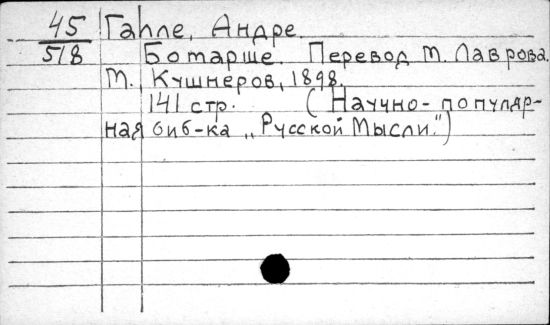 45 Галле, Андре.
518 Ботарше. Перевод М. Лаврова.
М., Кушнеров, 1898.
141 стр. (Научно-популяр-
ная биб-ка „Русской Мысли.")